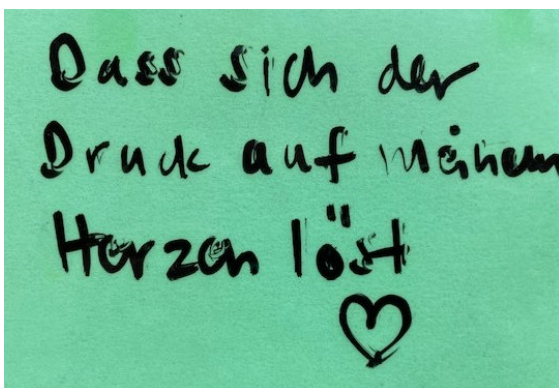 Dass sich der
Druck auf meinem
Herzen löst